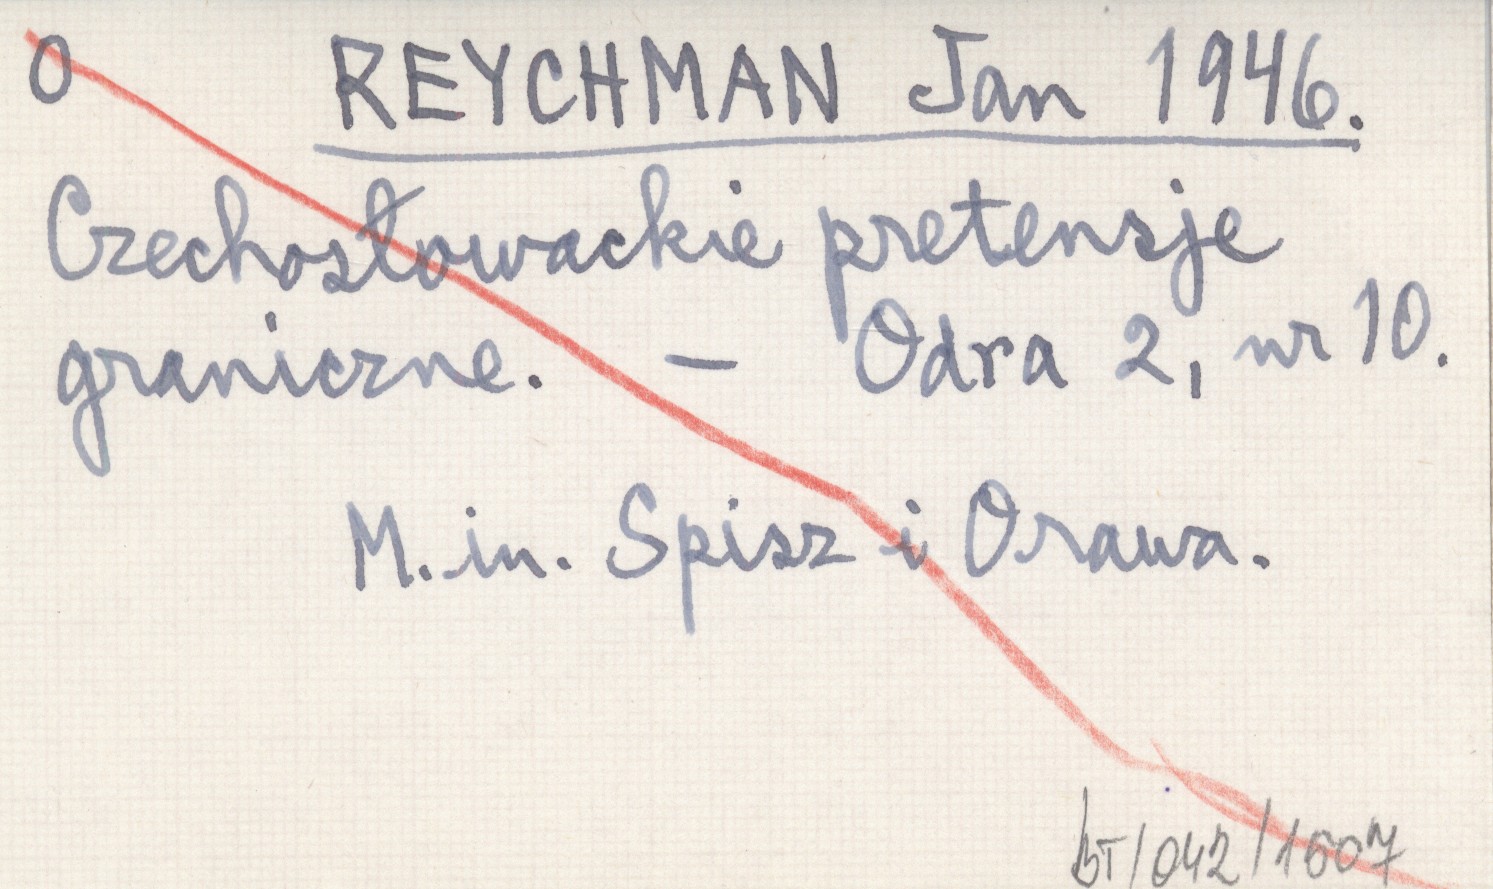 O REYCHMAN Jan 1946.
Czechosłowackie pretensje
graniczne. — Odra 2, nr 10.
M.in. Spisz i Orawa.
BT/042/1607